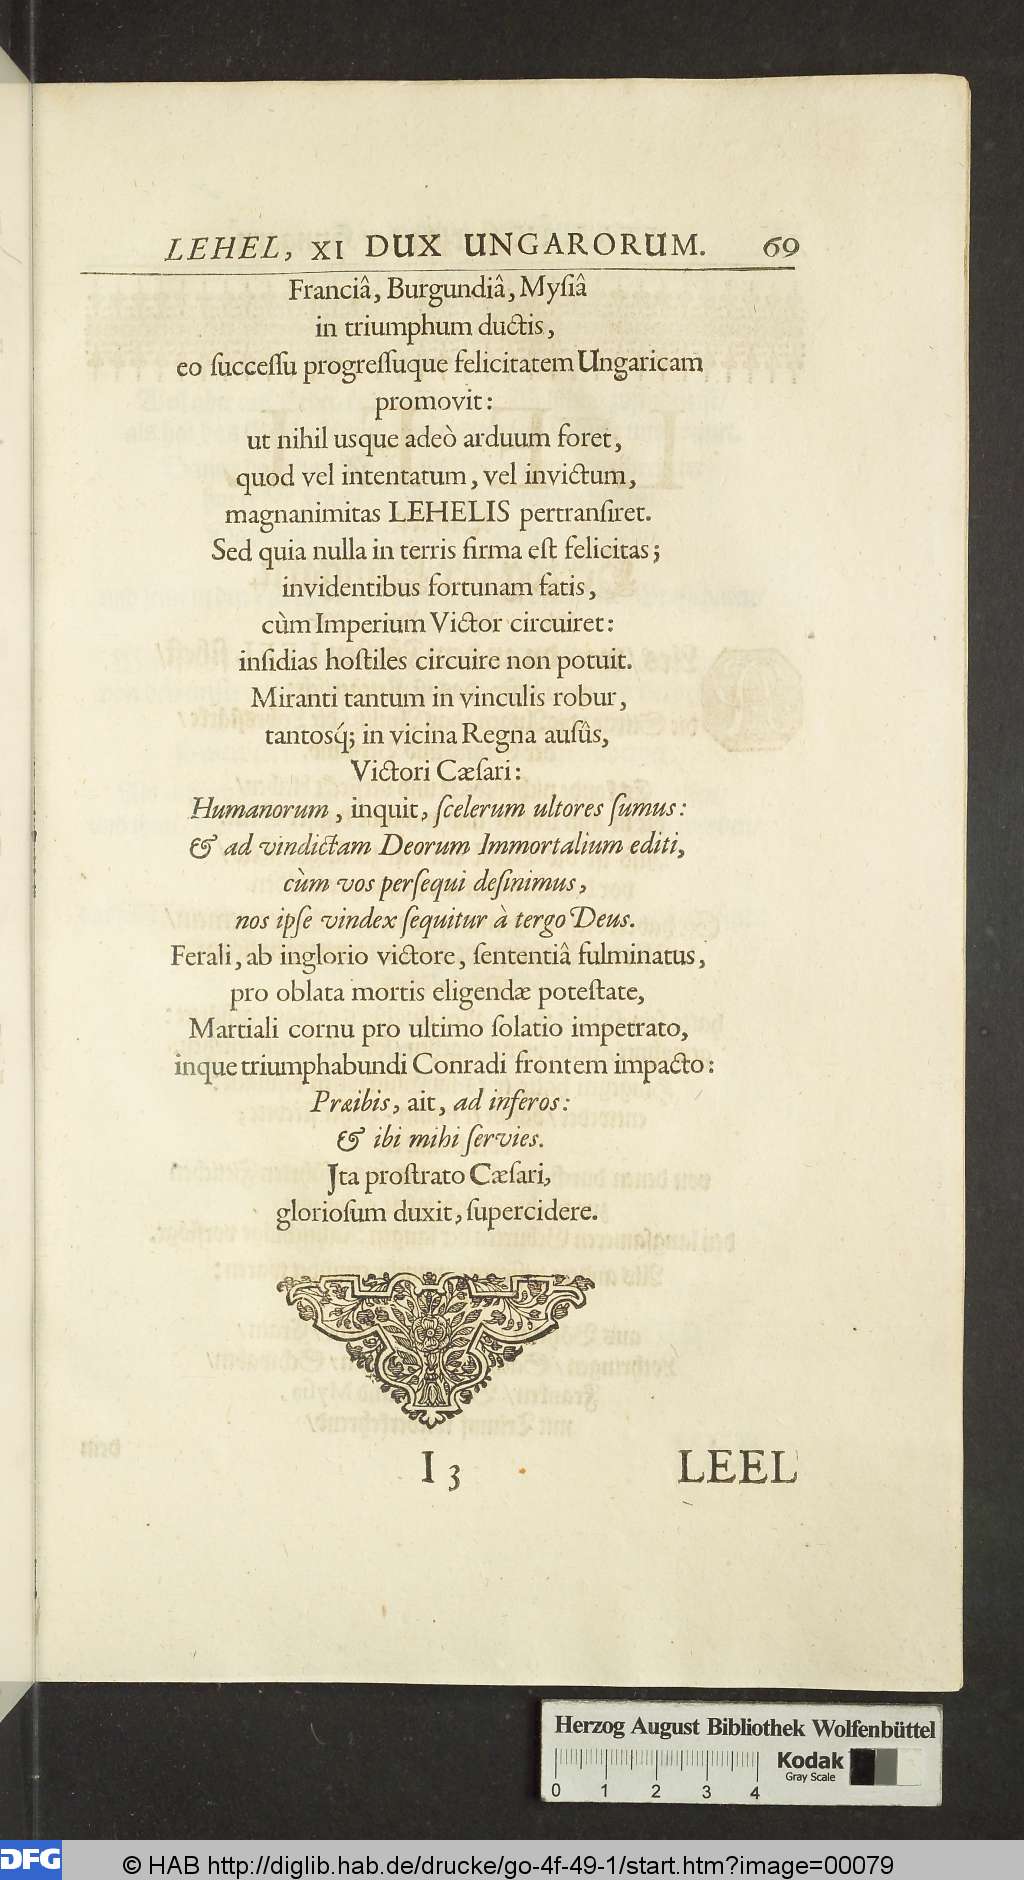 LEHEL, XI DUX UNGARORUM. 69
Franciâ, Burgundiâ, Myſiâ
in triumphum ductis,
eo ſucceſſu progreſſuque felicitatem Ungaricam
promovit:
ut nihil usque adeò arduum foret,
quod vel intentatum, vel invictum,
magnanimitas LEHELIS pertranſiret.
Sed quia nulla in terris firma eſt felicitas;
invidentibus fortunam fatis,
cùm Imperium Victor circuiret:
inſidias hoſtiles circuire non potuit.
Miranti tantum in vinculis robur,
tantosq́; in vicina Regna auſûs,
Victori Cæſari:
Humanorum, inquit, ſcelerum ultores ſumus:
& ad vindictam Deorum Immortalium editi,
cùm vos perſequi deſinimus,
nos ipſe vindex ſequitur à tergo Deus.
Ferali, ab inglorio victore, ſententiâ fulminatus,
pro oblata mortis eligendæ poteſtate,
Martiali cornu pro ultimo ſolatio impetrato,
inque triumphabundi Conradi frontem impacto:
Præibis, ait, ad inferos:
& ibi mihi ſervies.
Jta proſtrato Cæſari,
glorioſum duxit, ſupercidere.
I 3 LEEL
Herzog August Bibliothek Wolfenbüttel
Kodak
Gray Scale
0 1 2 3 4
DFG © HAB http://diglib.hab.de/drucke/go-4f-49-1/start.htm?image=00079